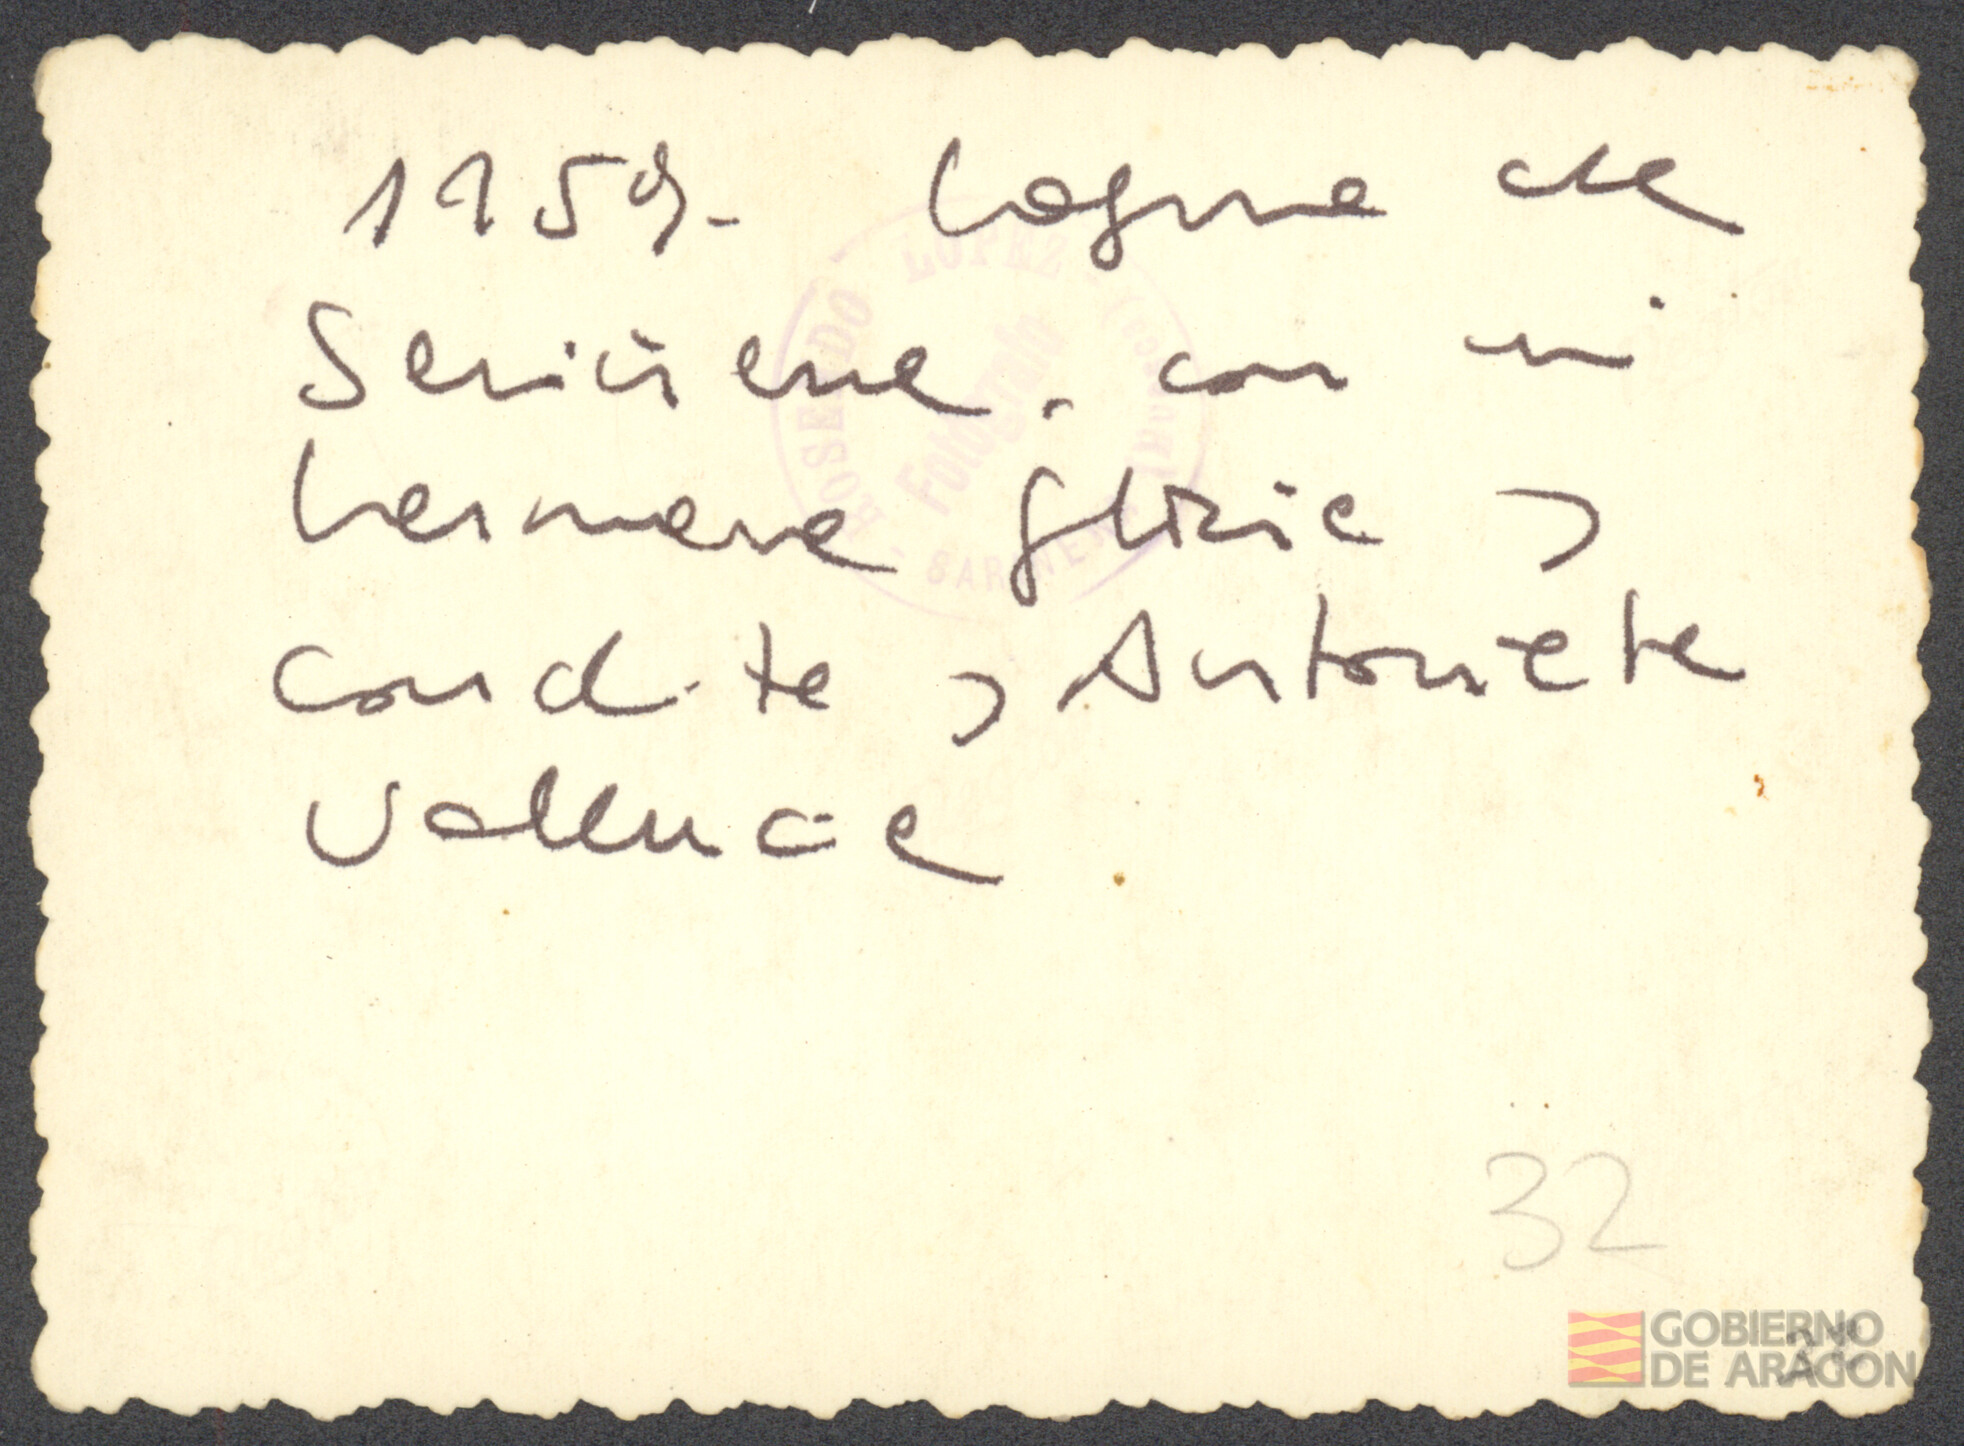 1959. Laguna de
Sariñena. con mi
hermana Gloria y
Conchita y Antonieta
Valencia
ROSENDO LOPEZ
Fotógrafo
SARIÑENA (Huesca)
32
GOBIERNO
DE ARAGON